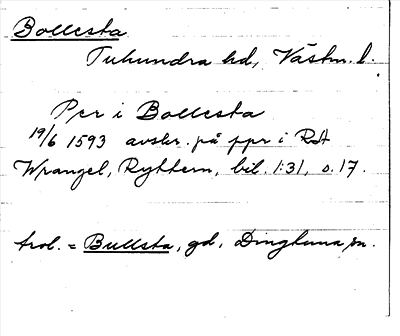 Bollesta
Tuhundra hd, Västm. l.
Per i Bollesta
19/6 1593 avskr. på ppr i RA
Wrangel, Ryttern, bil. 1:31, s. 17.
trol. = Bullsta, gd, Dingtuna sn.